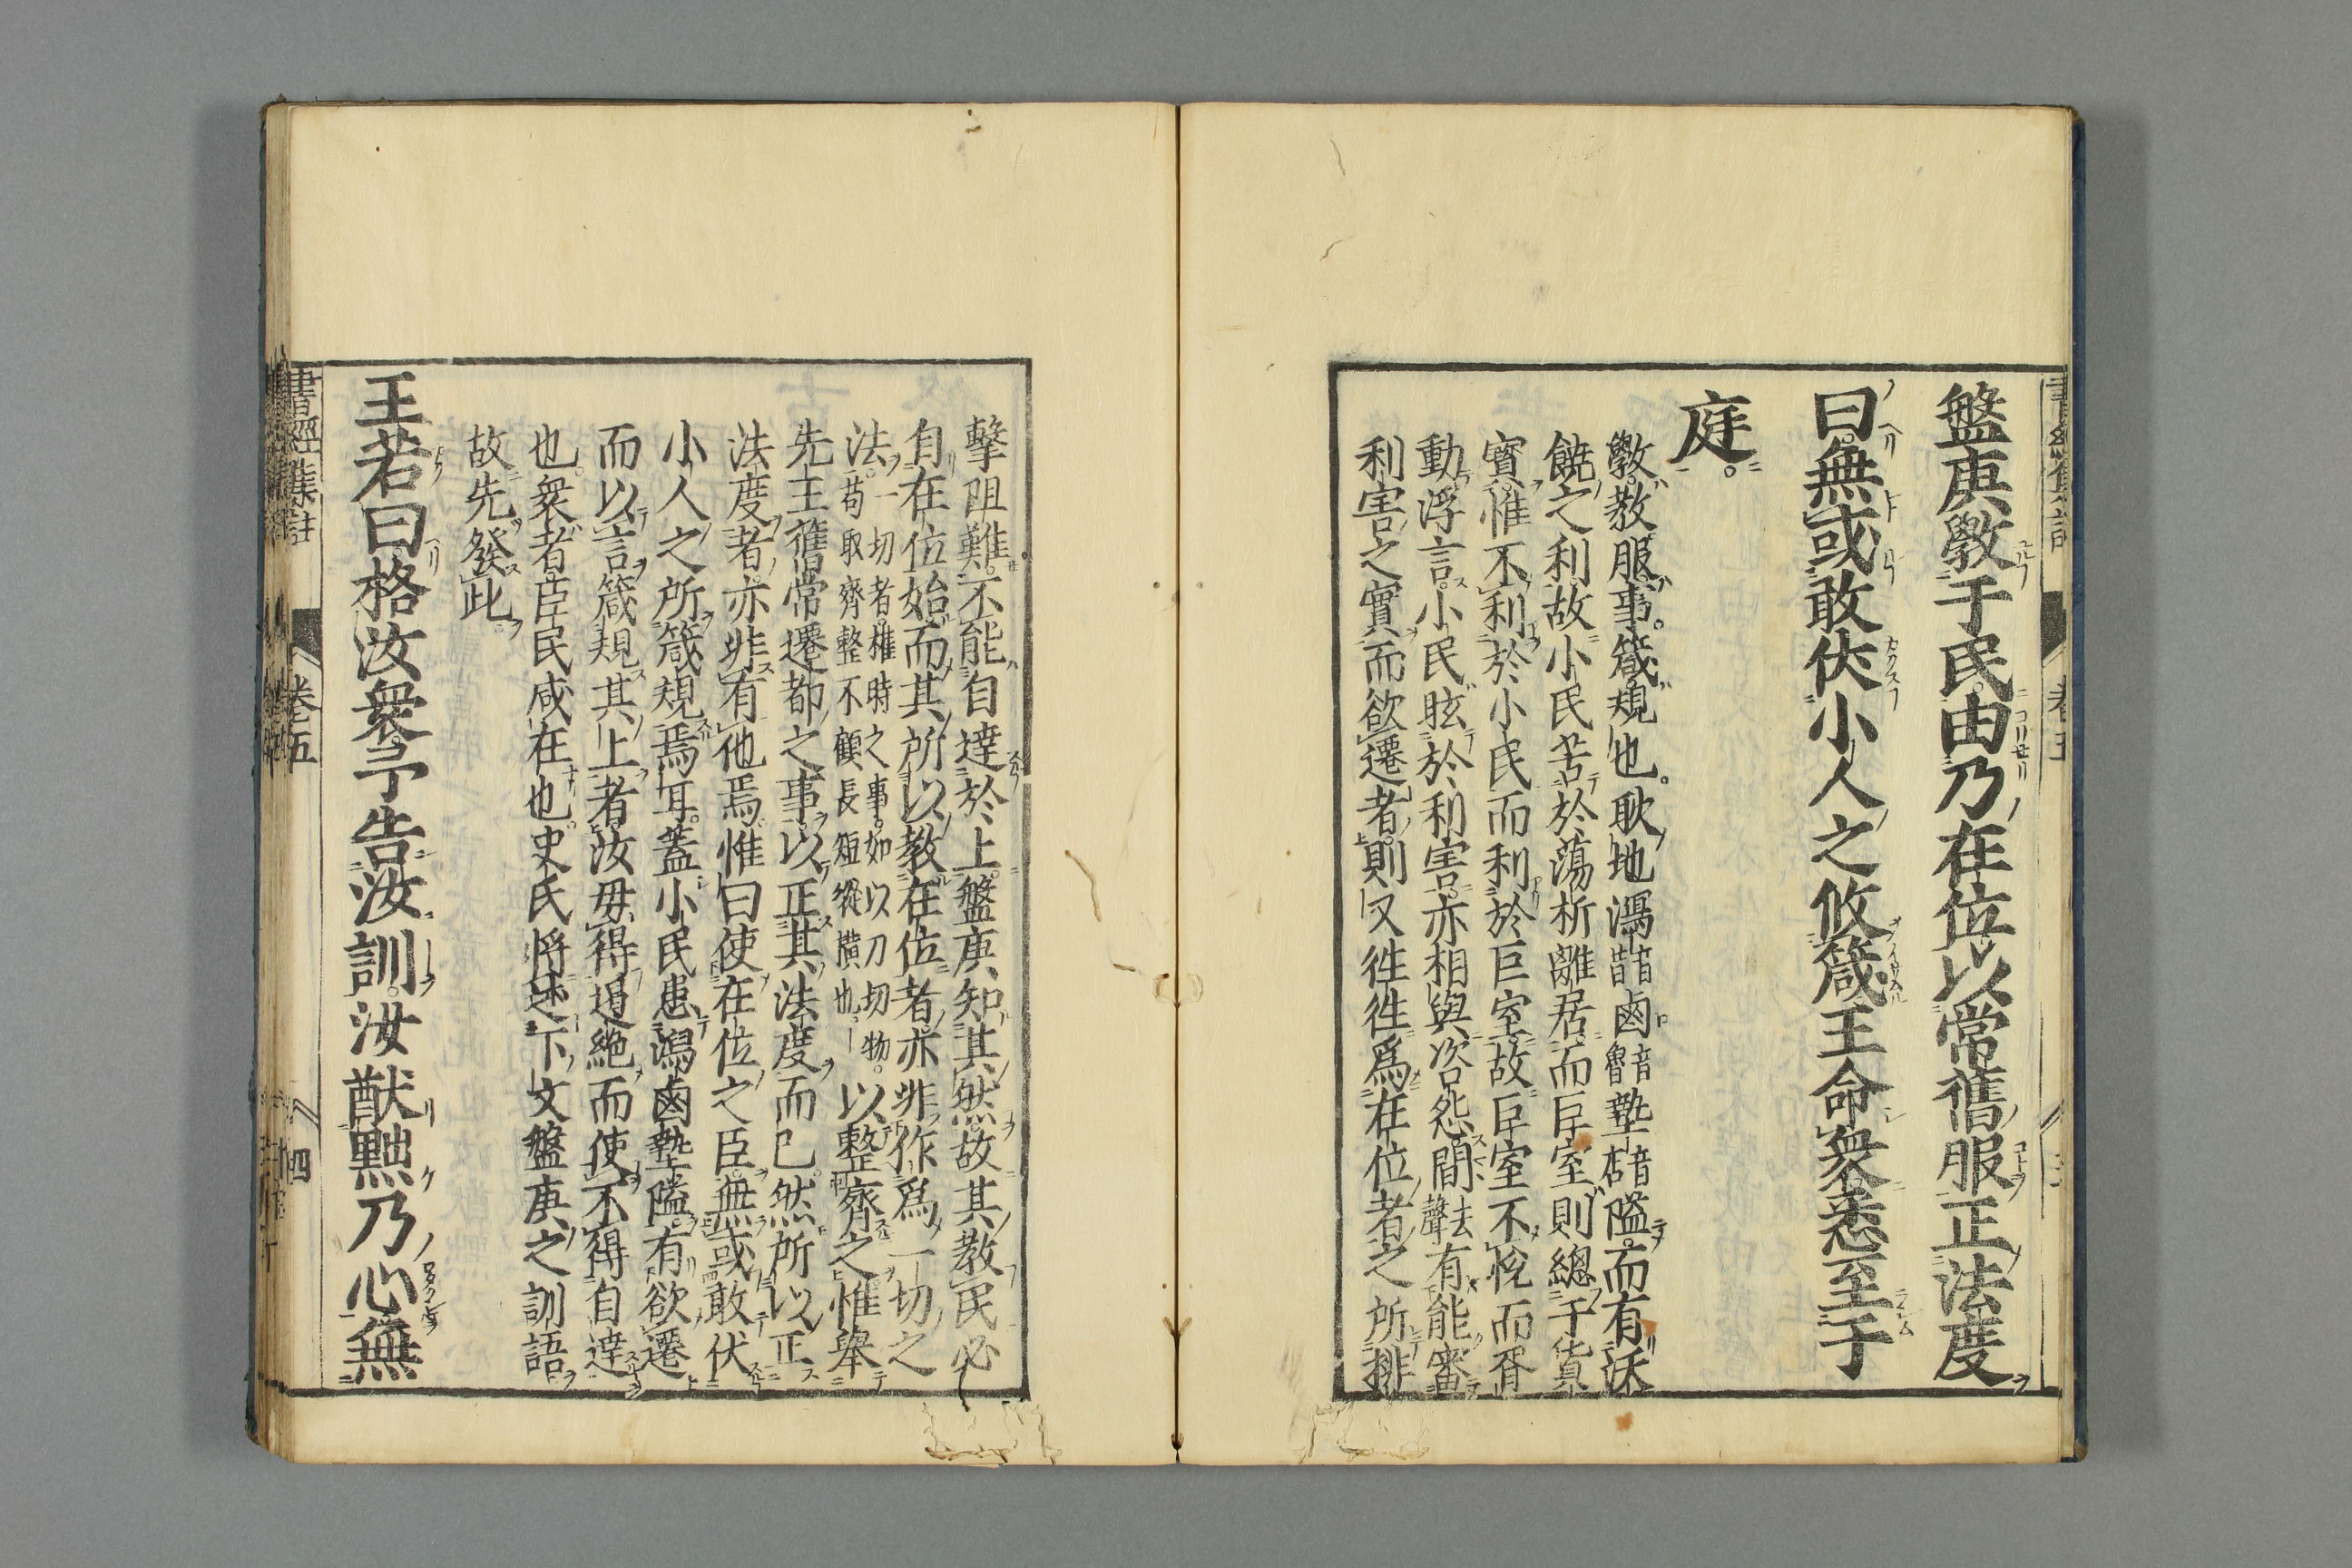 盤庚斆于民由乃在位以常舊服正法度
曰無或敢伏小人之攸箴王命衆悉至于
庭
斆敎服事箴規也耿地潟音昔鹵音魯墊音店隘而有沃
饒之利故小民苦於蕩析離居而巨室則總于貨
寶惟不利於小民而利於巨室故巨室不悅而胥
動浮言小民眩於利害亦相與咨怨間去聲有能審
利害之實而欲遷者則又徃徃爲在位者之所排
擊阻難不能自達於上盤庚知其然故其敎民必
自在位始而其所以敎在位者亦非作爲一切之
法一切者權時之事如以刀切物苟取齊整不顧長短縱橫也以整齊之惟擧
先王舊常遷都之事以正其法度而已然所以正
法度者亦非有他焉惟曰使在位之臣無或敢伏
小人之所箴規焉耳蓋小民患潟鹵墊隘有欲遷
而以言箴規其上者汝毋得遏絶而使不得自達
也衆者臣民咸在也史氏將述下文盤庚之訓語
故先發此
王若曰格汝衆予告汝訓汝猷黜乃心無
書經集註
卷五
四